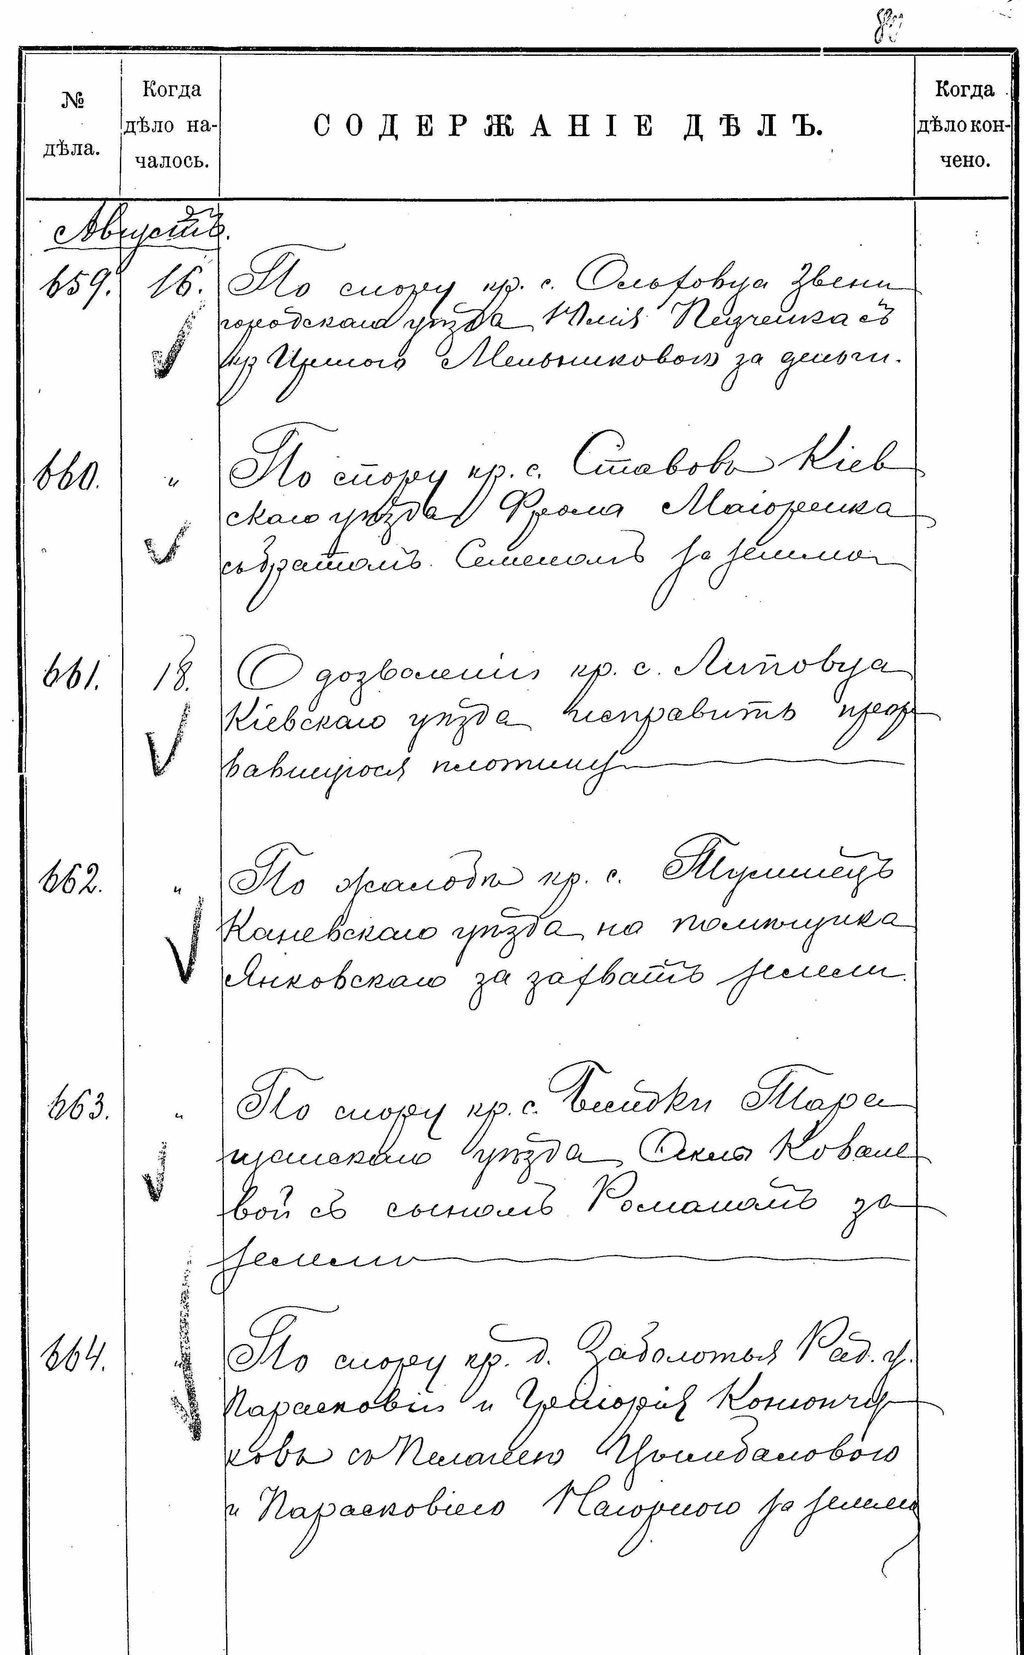 89
№ дѣла.
Когда дѣло началось.
СОДЕРЖАНІЕ ДѢЛЪ.
Когда дѣло кончено.
Августъ.
659. 16. По спору кр. с. Ольховца Звени
городскаго уѣзда Юлія съ
кр Мельниковою за деньги.
660. " По спору кр. с. Ставовъ Кіев
скаго уѣзда Фрола Маіоренка
съ братомъ Семеномъ за землю
661. 18. О дозволеніи кр. с. Липовца
Кіевскаго уѣзда исправить прор
вавшуюся плотину
662. " По жалобѣ кр. с. Тулинецъ
Каневскаго уѣзда на помѣщика
Янковскаго за захватъ земли.
663. " По спору кр. с. Тара
щанскаго уѣзда Ковале
вой съ сыномъ Романомъ за
землю
664. " По спору кр. д. Заболотья Рад. у.
Парасковіи и Григорія Конончу
ковъ съ Пелагіею Цымбаловою
и Парасковіею Нагорною за землю